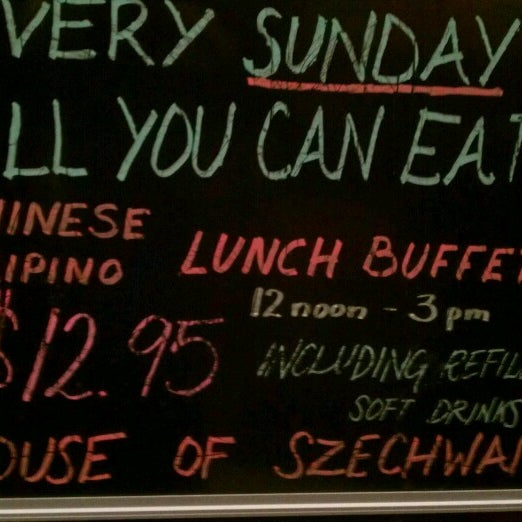 VERY SUNDAY
LL YOU CAN EAT
HINESE
IPINO
LUNCH BUFFET
$12.95
12 noon - 3 pm
INCLUDING REFILL
SOFT DRINKS
OUSE OF SZECHWAN